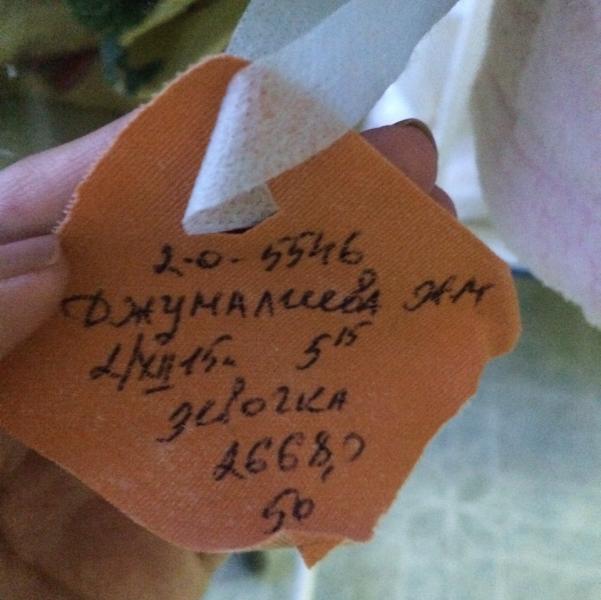 2-0-5546
ДЖУМАЛИЕВА Ж.М
2/XII 15г. 5 15
ДЕВОЧКА
2668,0
50